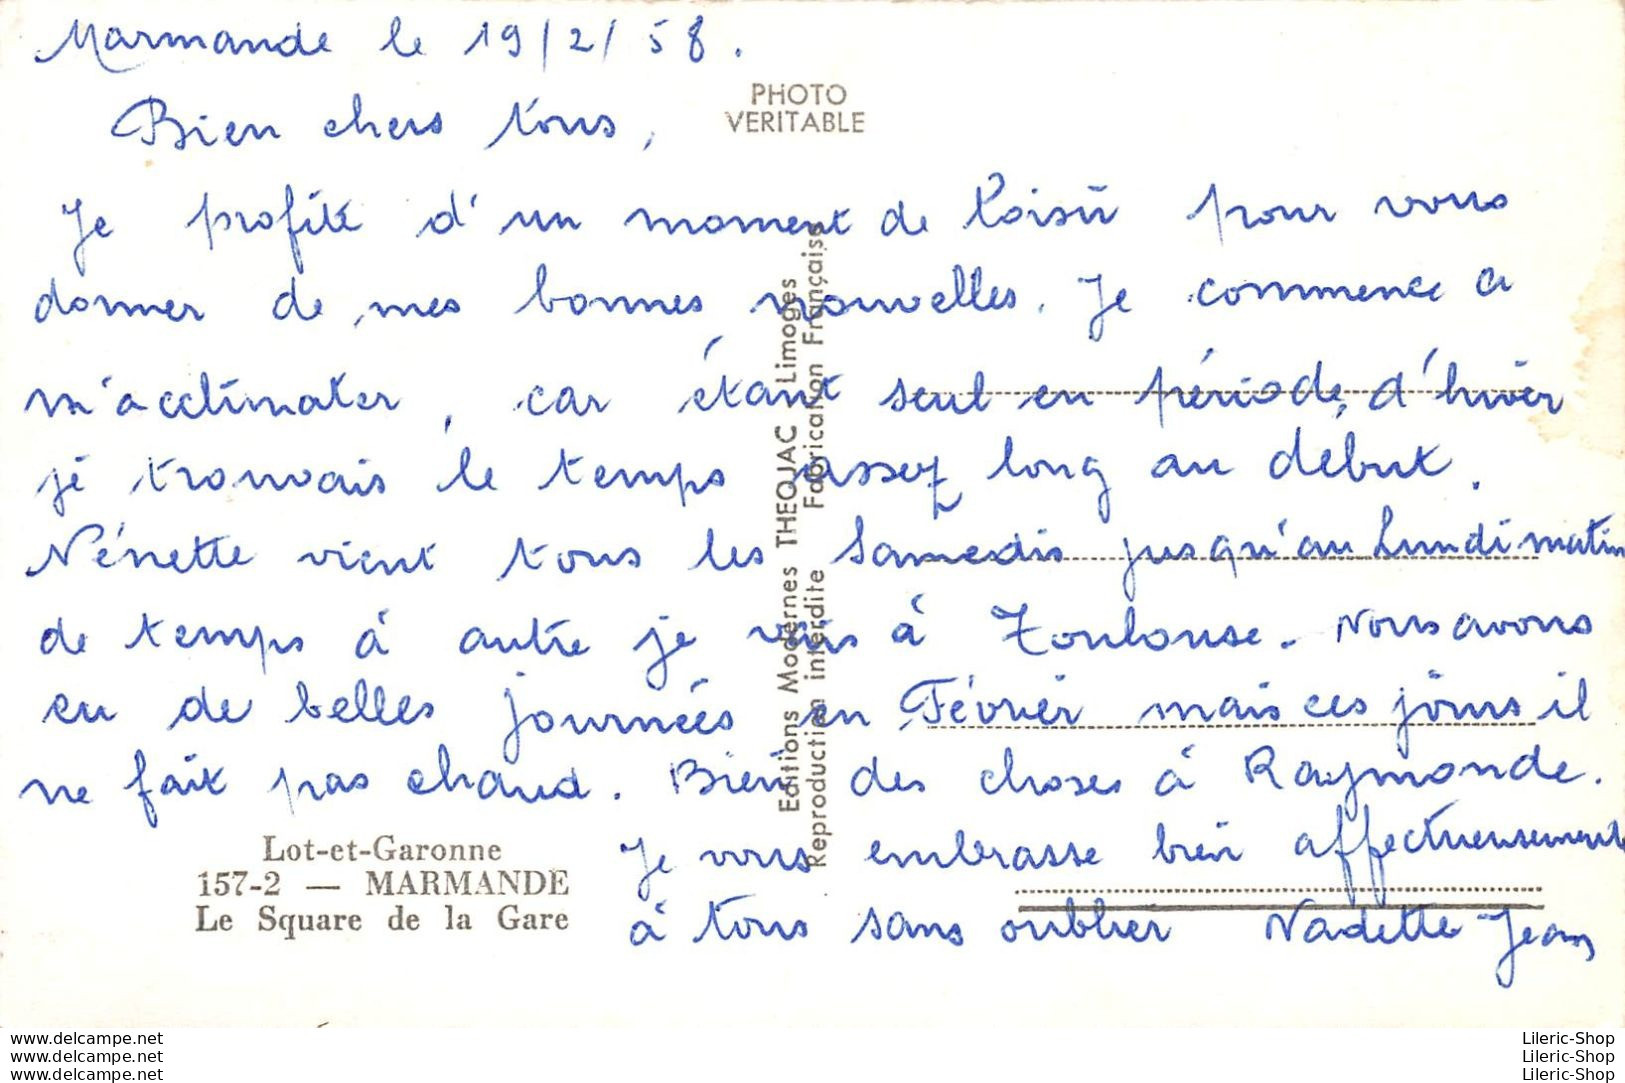 Marmande le 19/2/58.
PHOTO
VERITABLE
Bien chers tous,
Je profite d'un moment de loisir pour vous
donner de mes bonnes nouvelles. Je commence a
m'acclimater, car étant seul en période d'hiver
je trouvais le temps assez long au début.
Nénette vient tous les Samedis jusqu'au Lundi matin
de temps à autre je vais à Toulouse. Nous avons
eu de belles journées en Février mais ces jours il
ne fait pas chaud. Bien des choses à Raymonde.
Je vous embrasse bien affectueusement
à tous sans oublier Nadette Jean
Editions Modernes THEOJAC Limoges
Reproduction interdite Fabrication Française
Lot-et-Garonne
157-2 — MARMANDE
Le Square de la Gare
www.delcampe.net
www.delcampe.net
www.delcampe.net
Lileric-Shop
Lileric-Shop
Lileric-Shop